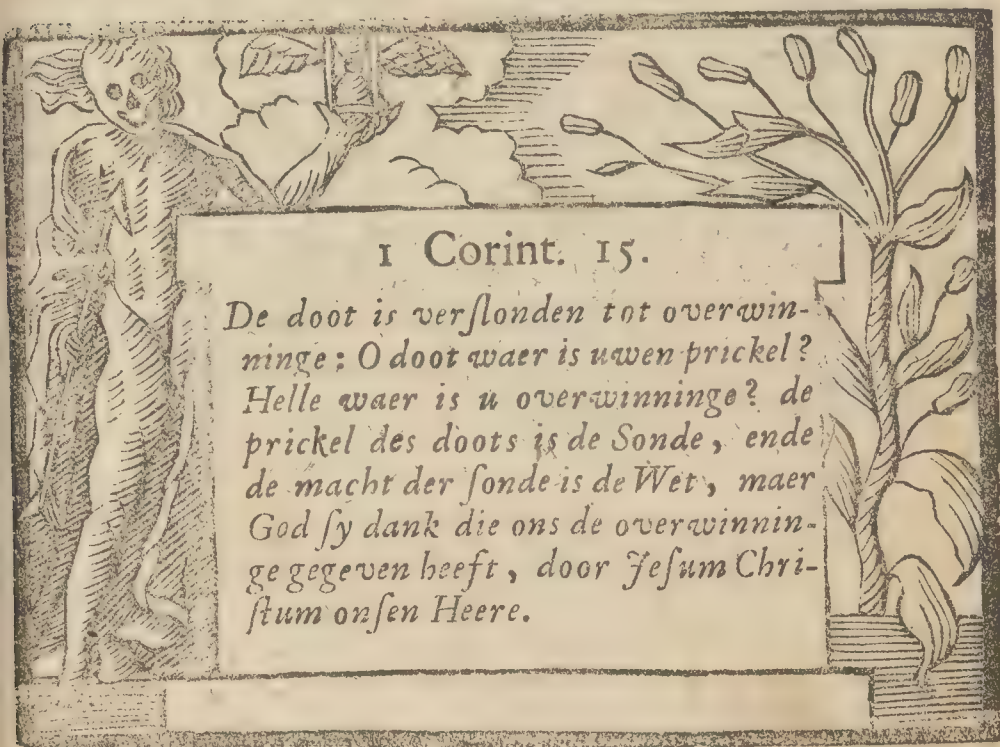 1 Corint. 15.
De doot is verſlonden tot overwin-
ninge : O doot waer is uwen prickel ?
Helle waer is u overwinninge ? de
prickel des doots is de Sonde , ende
de macht der ſonde is de Wet , maer
God ſy dank die ons de overwinnin-
ge gegeven heeft , door Jeſum Chri-
ſtum onſen Heere.